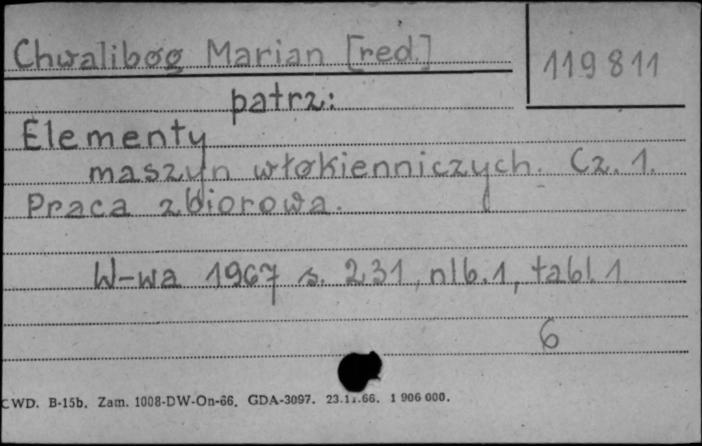 Chwalibóg Marian [red.]
119811
patrz:
Elementy
maszyn włókienniczych. Cz. 1.
Praca zbiorowa.
W-wa 1967 s. 231, nlb. 1, tabl. 1
6
CWD. B-15b. Zam. 1008-DW-On-66. GDA-3097. 23.11.66. 1 906 000.